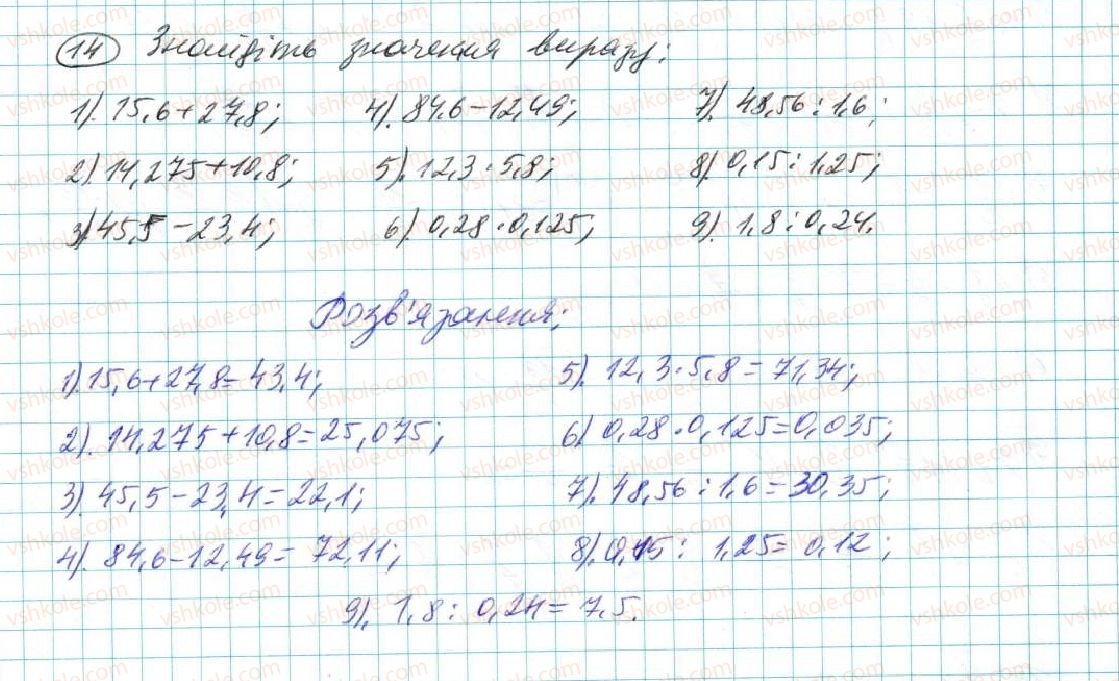 14 Знайдіть значення виразу:
1). 15,6+27,8; 4). 84,6-12,49; 7). 48,56:1,6;
2) 14,275+10,8; 5). 12,3·5,8; 8) 0,15:1,25;
3) 45,5-23,4; 6). 0,28·0,125; 9). 1,8:0,24.
Розв'язання:
1) 15,6+27,8=43,4; 5). 12,3·5,8=71,34;
2). 14,275+10,8=25,075; 6) 0,28·0,125=0,035;
3). 45,5-23,4=22,1; 7). 48,56:1,6=30,35;
4). 84,6-12,49=72,11; 8). 0,15:1,25=0,12;
9). 1,8:0,24=7,5.